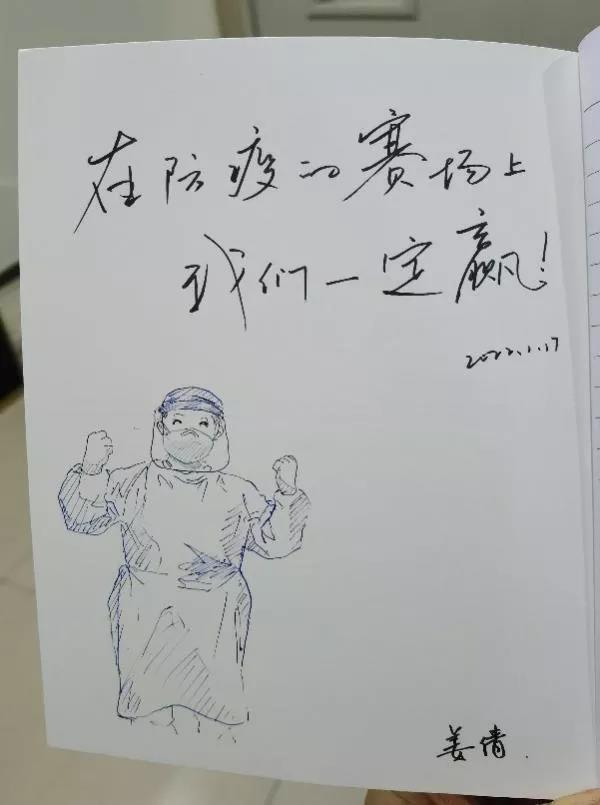 在防疫的赛场上
我们一定赢!
2022.1.17
姜倩